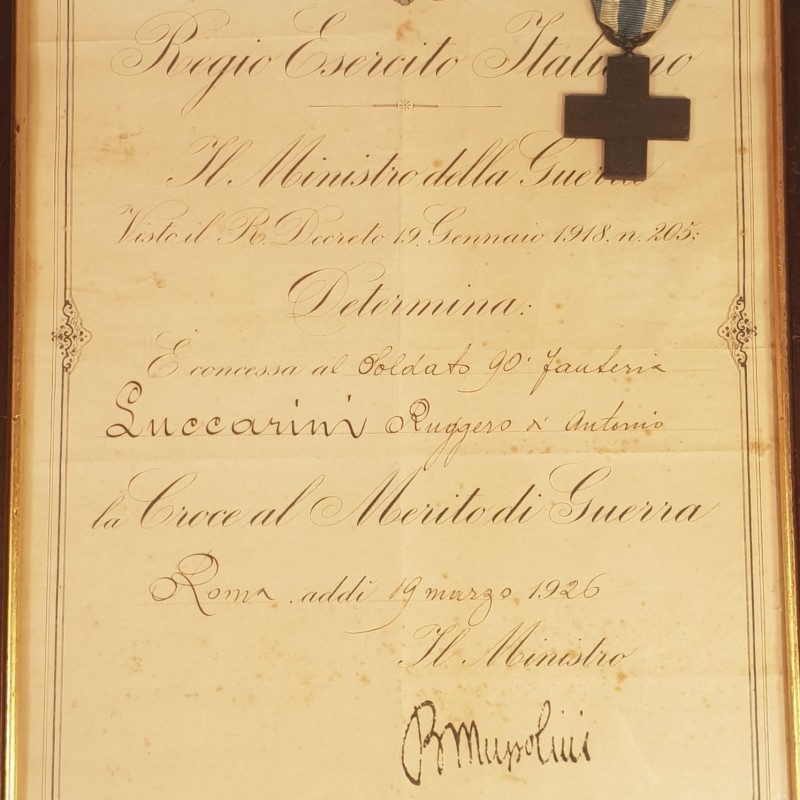 Regio Esercito Italiano
Il Ministro della Guerra
Visto il R. Decreto 19. Gennaio 1918. n. 205:
Determina:
È concessa al Soldato 90° fanteria
Luccarini Ruggero di Antonio
la Croce al Merito di Guerra
Roma, addì 19 marzo 1926
Il Ministro
B Mussolini